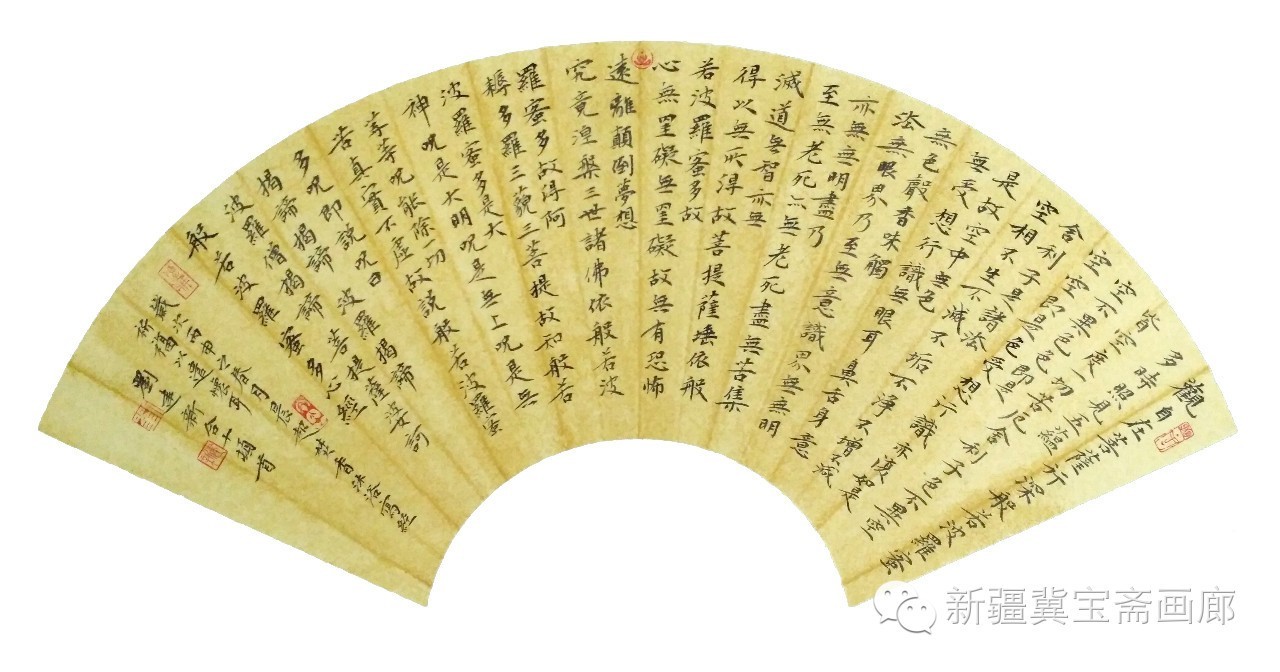 觀自在菩薩行深般若波羅蜜
多時照見五蘊
皆空度一切苦厄舍利子色不異空
空不異色色即是
空空即是色受想行識亦復如是
舍利子是諸法
空相不生不滅不垢不淨不增不減
是故空中無色
無受想行識無眼耳鼻舌身意
無色聲香味觸
法無眼界乃至無意識界無無明
亦無無明盡乃
至無老死亦無老死盡無苦集
滅道無智亦無
得以無所得故菩提薩埵依般
若波羅蜜多故
心無罣礙無罣礙故無有恐怖
遠離顛倒夢想
究竟涅槃三世諸佛依般若波
羅蜜多故得阿
耨多羅三藐三菩提故知般若
波羅蜜多是大
神呪是大明呪是無上呪是無
等等呪能除一切
苦真實不虛故說般若波羅蜜
多呪即說呪曰
揭諦揭諦波羅揭諦
波羅僧揭諦菩提薩婆訶
般若波羅蜜多心經
歲次丙申之月晨起焚香沐浴寫經
祈福以遣懷耳
劉建新合十頓首
新疆冀宝斋画廊